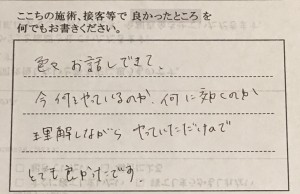 ここちの施術、接客等で良かったところを
何でもお書きください。
色々お話しできて、
今何をやっているのか、何に効くのか
理解しながらやっていただけたので
とても良かったです。